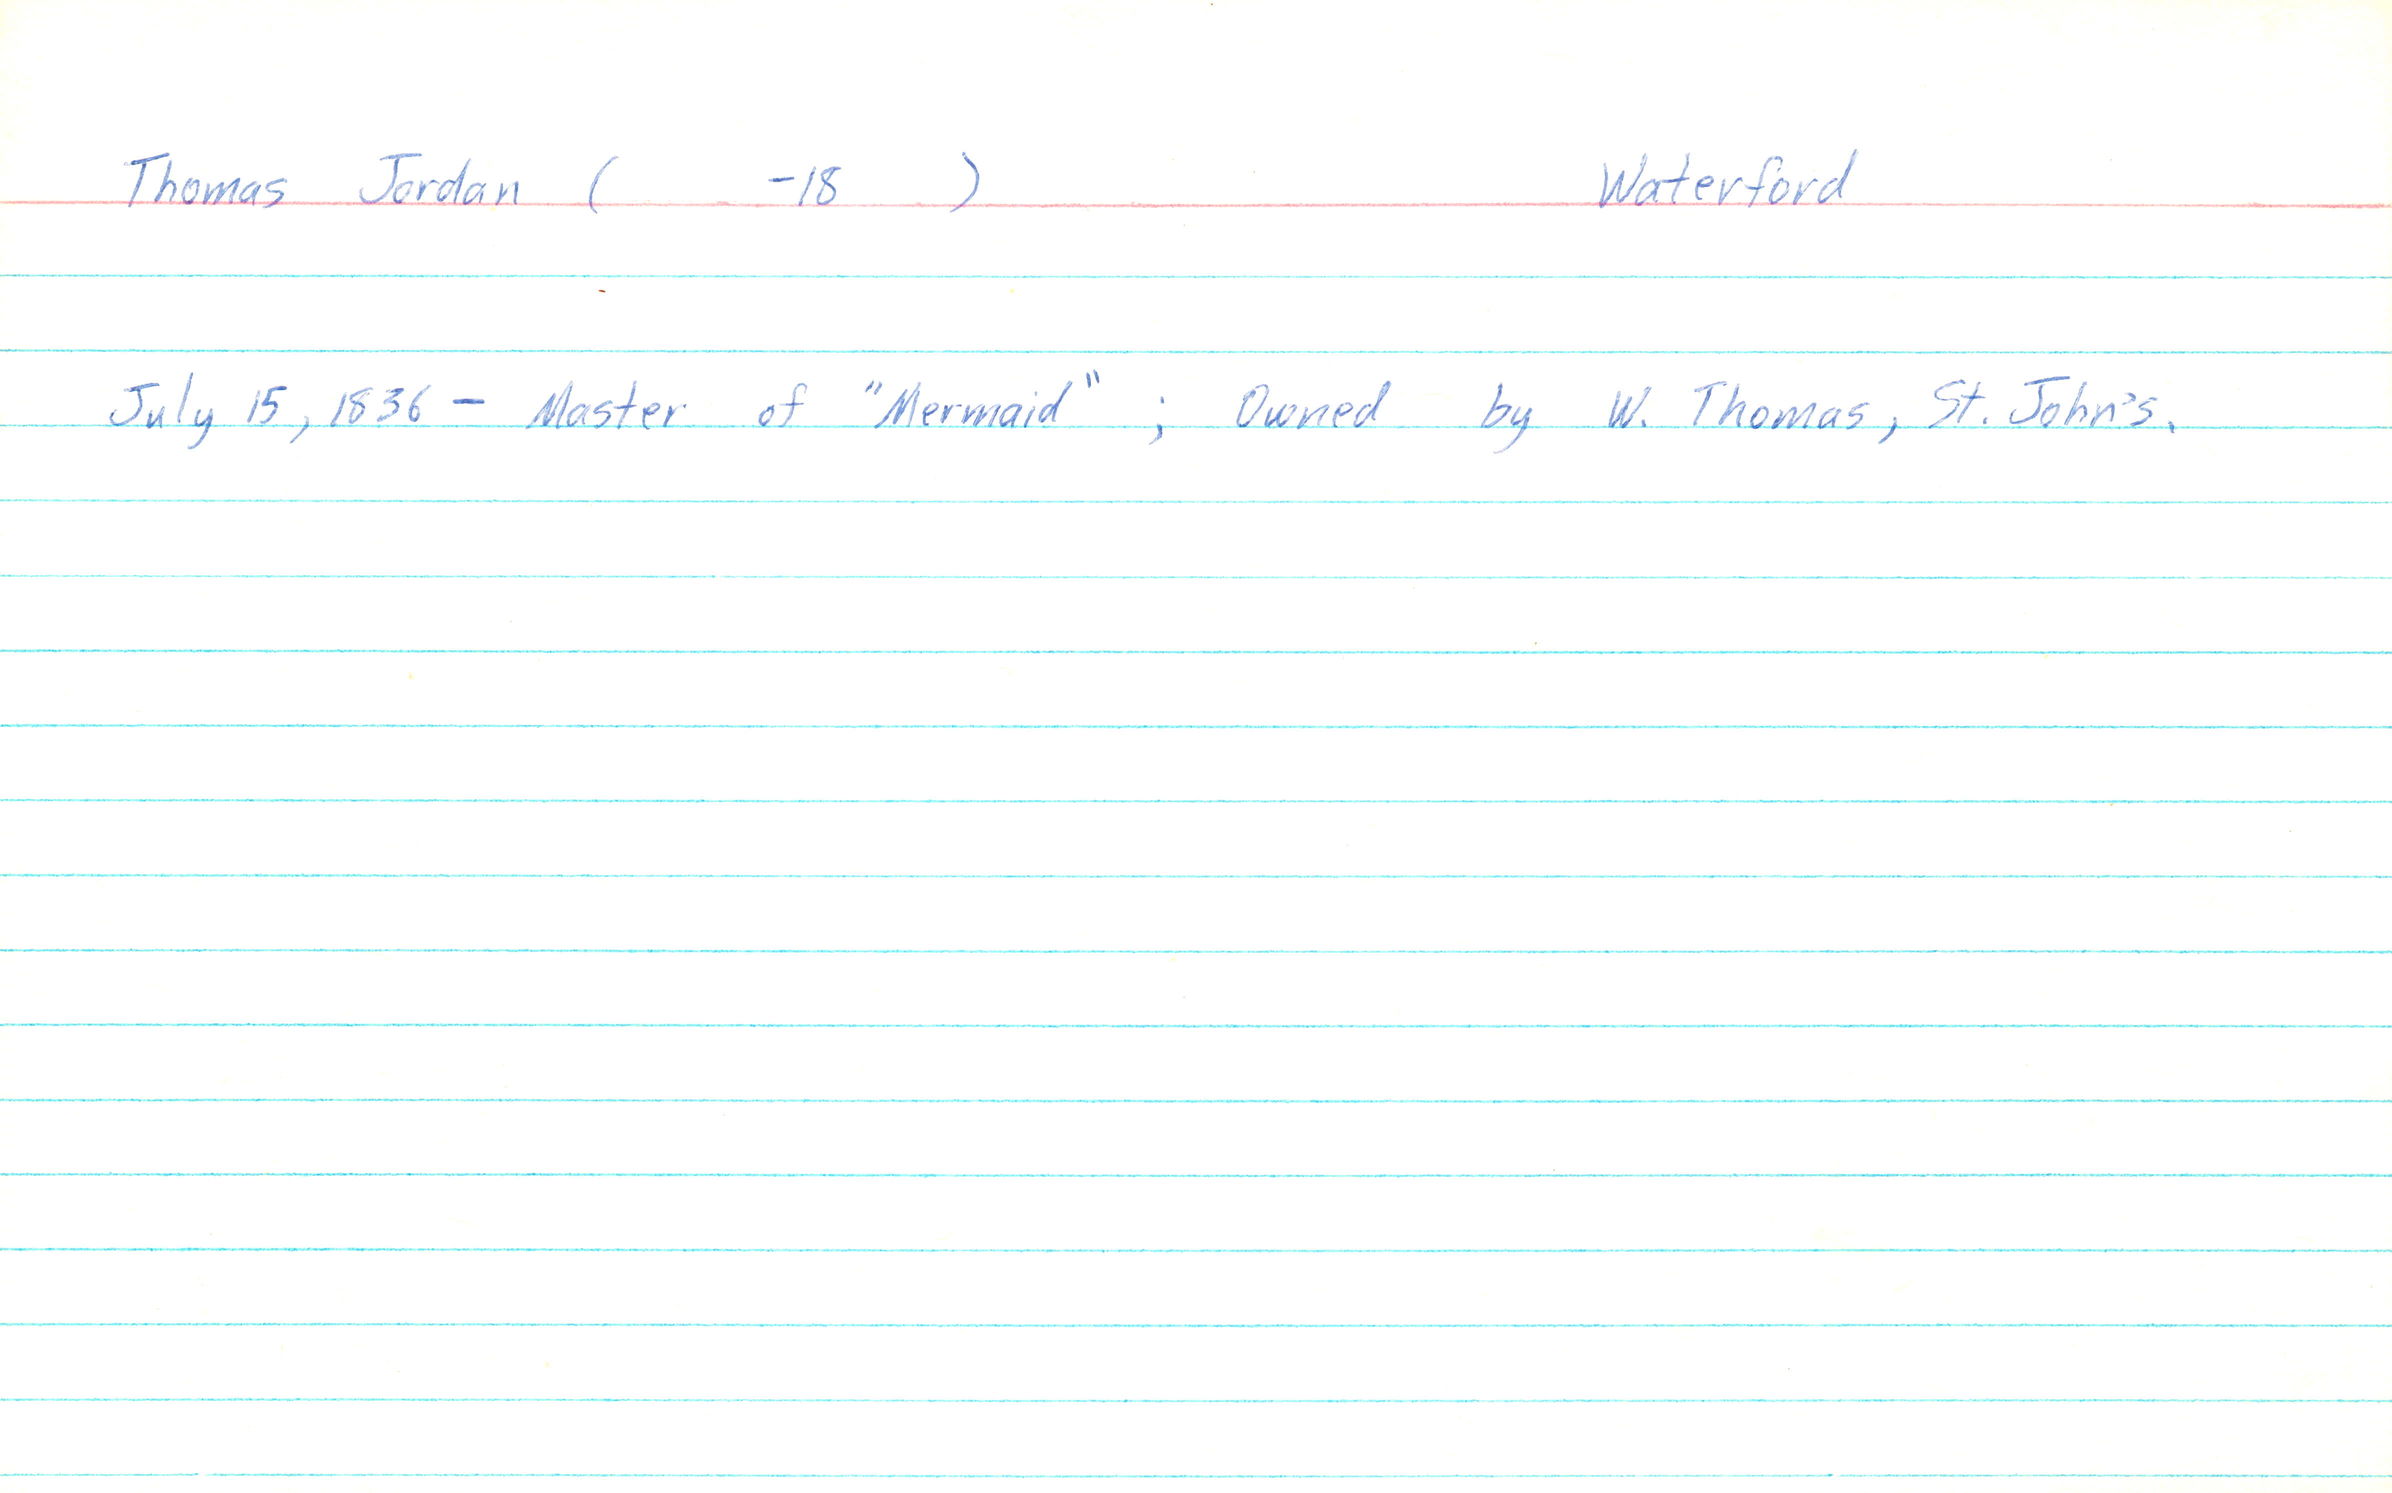 Thomas Jordan ( -18 ) Waterford
July 15, 1836 - Master of "Mermaid" ; Owned by W. Thomas, St. John's.